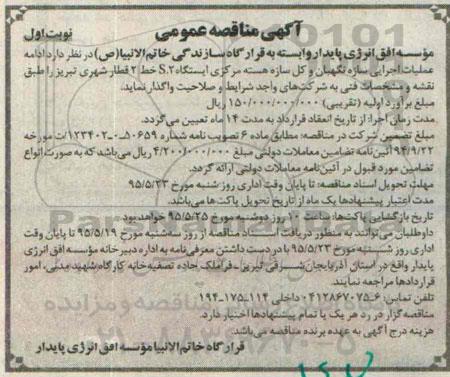 آگهی مناقصه عمومی
نوبت اول
مؤسسه افق انرژی پایدار وابسته به قرارگاه سازندگی خاتم الانبیا(ص) در نظر دارد ادامه
عملیات اجرایی سازه نگهبان و کل سازه هسته مرکزی ایستگاه S.2 خط ۲ قطار شهری تبریز را طبق
نقشه و مشخصات فنی به شرکت‌های واجد شرایط و صلاحیت واگذار نماید.
مبلغ برآورد اولیه (تقریبی) ۱۵۰/۰۰۰/۰۰۰/۰۰۰ ریال
مدت زمان اجرا: از تاریخ انعقاد قرارداد به مدت ۱۴ ماه می‌گردد.
مبلغ تضمین شرکت در مناقصه: مطابق ماده ۶ تصویب نامه شماره ۵۰۶۵۹هـ-۱۲۳۴۰۲/ت مورخه
۹۴/۹/۲۲ آئین نامه تضامین معاملات دولتی مبلغ ۴/۲۰۰/۰۰۰/۰۰۰ ریال می‌باشد که به صورت انواع
تضامین مورد قبول در آئین‌نامه معاملات دولتی ارائه گردد.
مهلت تحویل اسناد مناقصه: تا پایان وقت اداری روز شنبه مورخ ۹۵/۵/۲۳
مدت اعتبار پیشنهادها یک ماه از تاریخ تحویل پاکت‌ها می‌باشد.
تاریخ بازگشایی پاکت‌ها: ساعت ۱۰ روز دوشنبه مورخ ۹۵/۵/۲۵ خواهد بود.
داوطلبان می‌توانند به منظور دریافت اسناد مناقصه از روز سه‌شنبه مورخ ۹۵/۵/۱۹ تا پایان وقت
اداری روز شنبه مورخ ۹۵/۵/۲۳ با در دست داشتن معرفی‌نامه به اداره دبیرخانه مؤسسه افق انرژی
پایدار واقع در استان آذربایجان شرقی تبریز- قراملک جاده تصفیه‌خانه کارگاه شهید مدنی، امور
قراردادها مراجعه نمایند.
تلفن تماس: ۶-۰۴۱۲۸۶۷۰۷۵ داخلی ۱۱۴-۱۷۵-۱۹۴
مناقصه‌گزار در رد هر یک یا تمام پیشنهادها اختیار دارد.
هزینه درج آگهی به عهده برنده مناقصه می‌باشد.
قرارگاه خاتم الانبیا مؤسسه افق انرژی پایدار